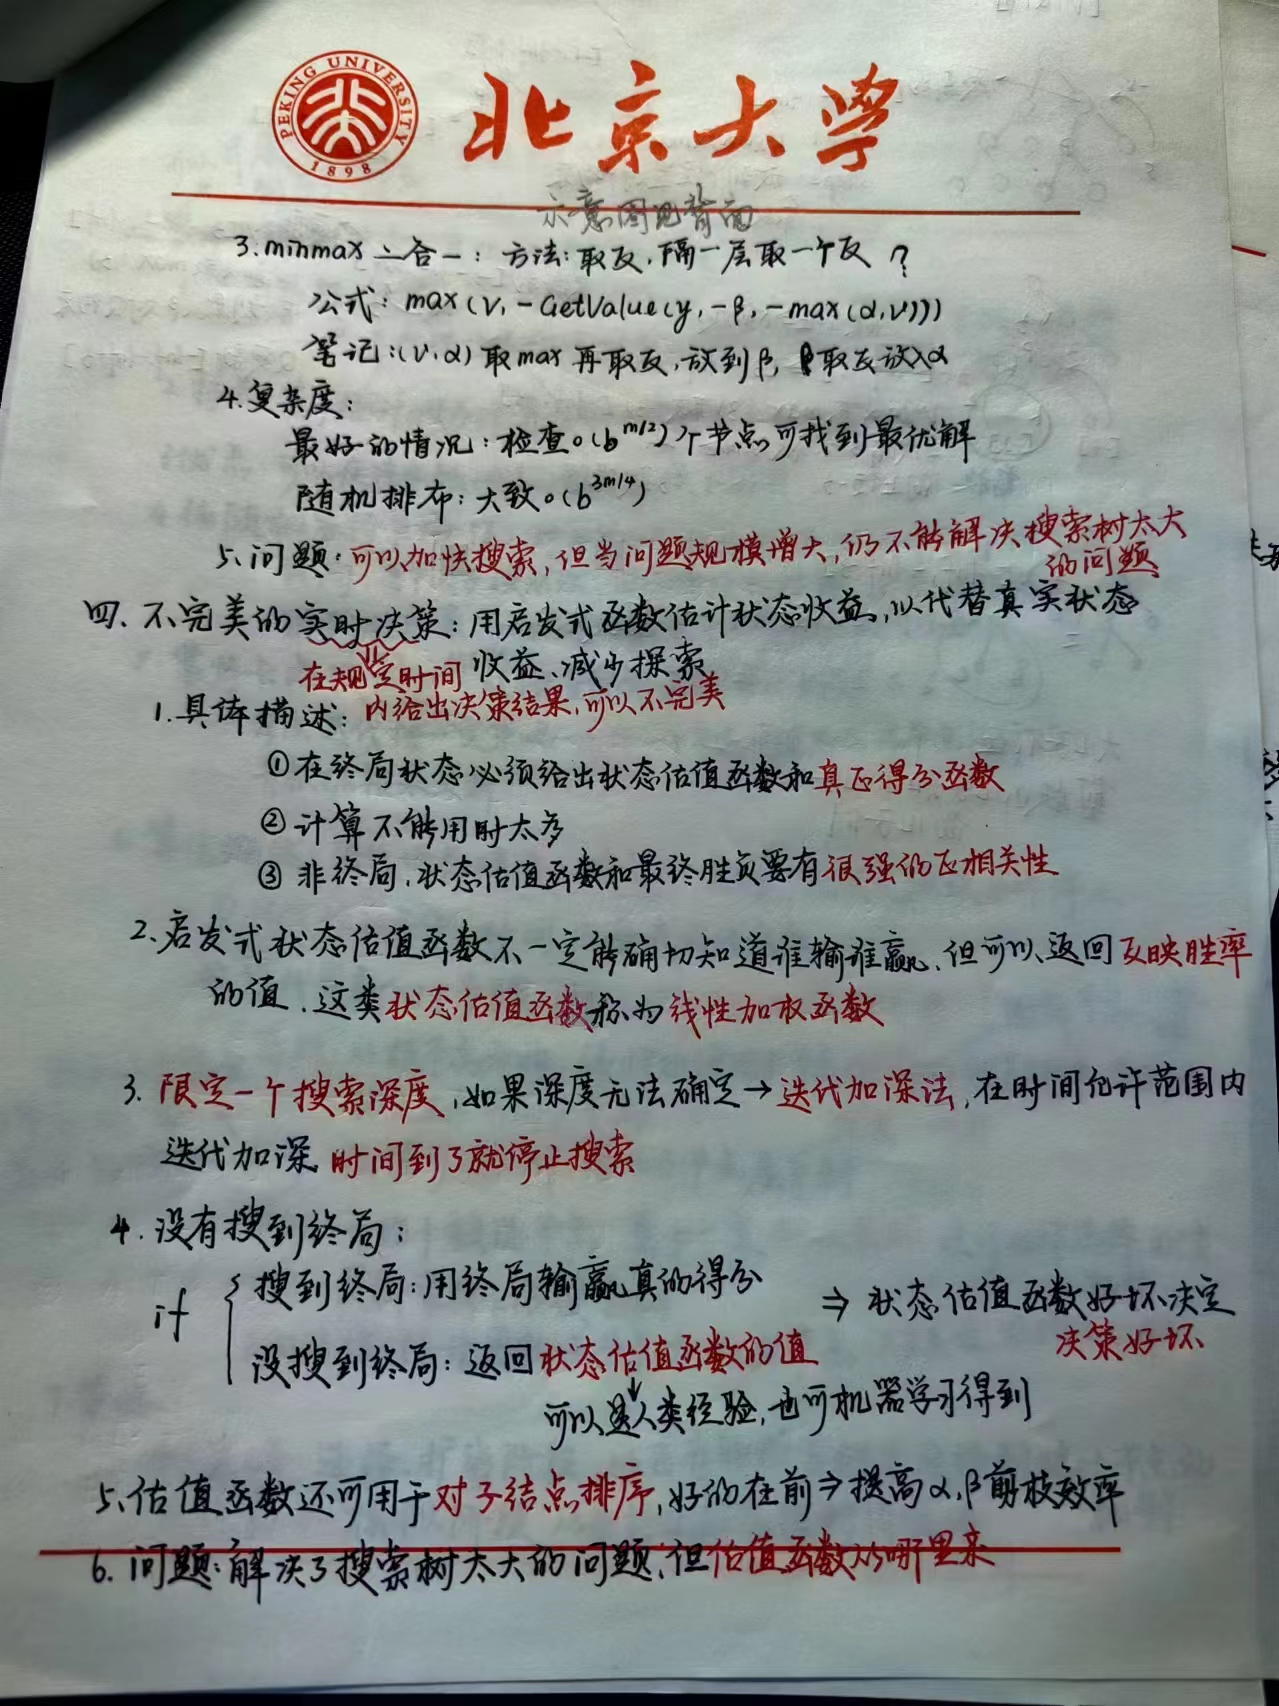 PEKING UNIVERSITY
1898
北京大学
示意图见背面
3.minmax二合一：方法：取反，隔一层取一个反？
公式：max(v,-GetValue(y,-β,-max(α,v)))
笔记：(v,α)取max再取反，放到β，β取反放入α
4.复杂度：
最好的情况：检查o(b^m/2)个节点可找到最优解
随机排布：大致o(b^3m/4)
5.问题：可以加快搜索，但当问题规模增大，仍不能解决搜索树太大
的问题
四、不完美的实时决策：用启发式函数估计状态收益，以代替真实状态
收益、减少探索
在规定时间
1.具体描述：内给出决策结果，可以不完美
①在终局状态必须给出状态估值函数和真正得分函数
②计算不能用时太多
③非终局，状态估值函数和最终胜负要有很强的正相关性
2、启发式状态估值函数不一定能确切知道谁输谁赢、但可以返回反映胜率
的值、这类状态估值函数称为线性加权函数
3.限定一个搜索深度，如果深度无法确定→迭代加深法，在时间允许范围内
迭代加深，时间到了就停止搜索
4.没有搜到终局：
if
搜到终局：用终局输赢真的得分
没搜到终局：返回状态估值函数的值
⇒状态估值函数好坏决定
决策好坏
↓
可以是人类经验，也可机器学习得到
5、估值函数还可用于对子结点排序，好的在前⇒提高α,β剪枝效率
6.问题：解决了搜索树太大的问题，但估值函数从哪里来